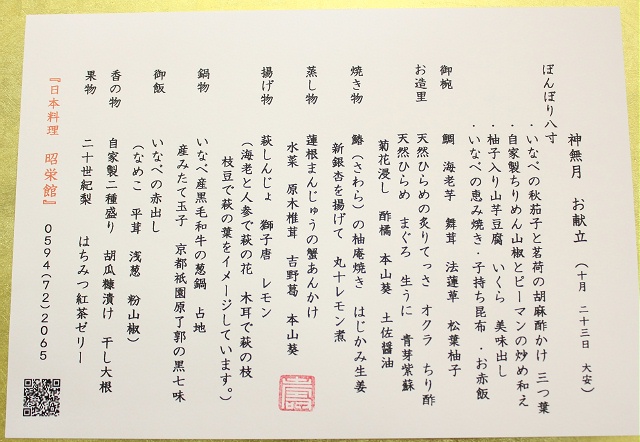 神無月　お献立　（十月　二十三日　大安）
ぼんぼり八寸
・いなべの秋茄子と茗荷の胡麻酢かけ　三つ葉
・自家製ちりめん山椒とピーマンの炒め和え
・柚子入り山芋豆腐　いくら　美味出し
・いなべの恵み焼き・子持ち昆布　・お赤飯
御椀　鯛　海老芋　舞茸　法蓮草　松葉柚子
お造里　天然ひらめの炙りてっさ　オクラ　ちり酢
天然ひらめ　まぐろ　生うに　青芽紫蘇
菊花浸し　酢橘　本山葵　土佐醤油
焼き物　鰆（さわら）の柚庵焼き　はじかみ生姜
新銀杏を揚げて　丸十レモン煮
蒸し物　蓮根まんじゅうの蟹あんかけ
水菜　原木椎茸　吉野葛　本山葵
揚げ物　萩しんじょ　獅子唐　レモン
（海老と人参で萩の花　木耳で萩の枝
枝豆で萩の葉をイメージしています。）
鍋物　いなべ産黒毛和牛の葱鍋　占地
産みたて玉子　京都祇園原了郭の黒七味
御飯　いなべの赤出し
（なめこ　平茸　浅葱　粉山椒）
香の物　自家製二種盛り　胡瓜糠漬け　干し大根
果物　二十世紀梨　はちみつ紅茶ゼリー
『日本料理　昭栄館』　0594（72）2065
壽